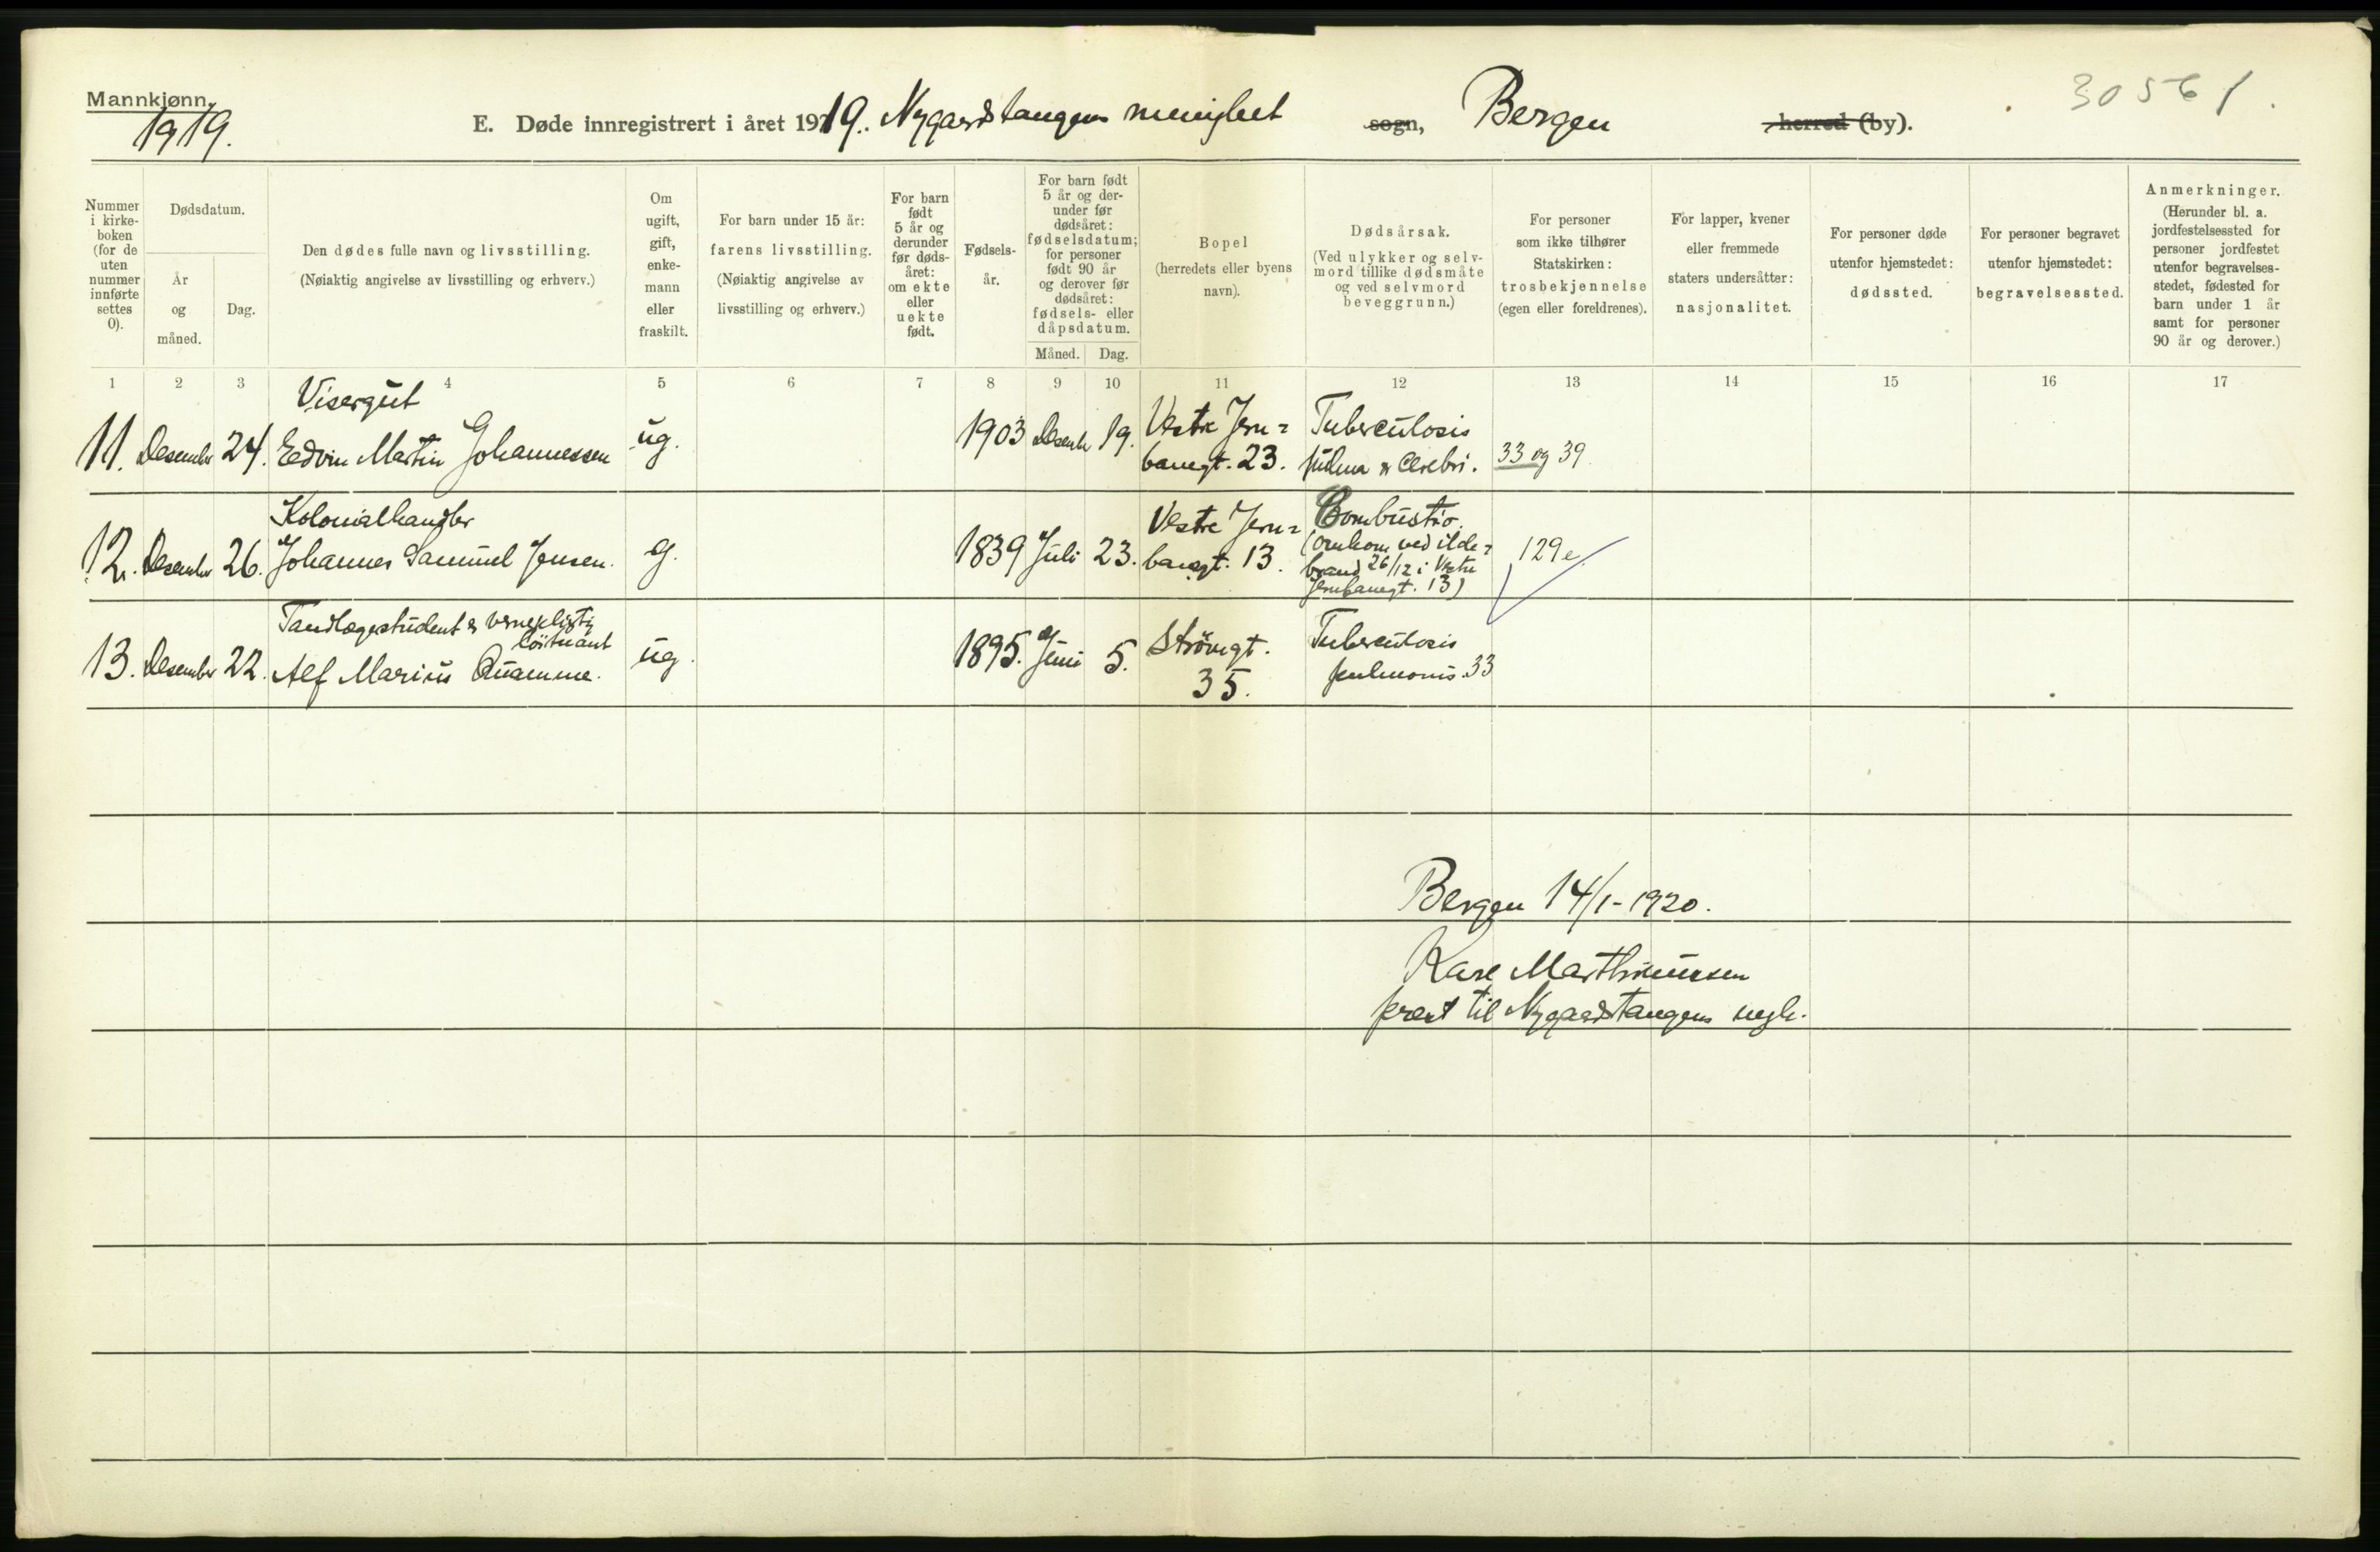 Mannkjønn.
1919.
E. Døde innregistrert i året 1919. Nygaardstangens menighet sogn, Bergen herred (by).
30561
Nummer i kirke-boken (for de uten nummer innførte settes 0).
Dødsdatum.
År og måned.
Dag.
Den dødes fulle navn og livsstilling.
(Nøiaktig angivelse av livsstilling og erhverv.)
Om ugift, gift, enke-mann eller fraskilt.
For barn under 15 år: farens livsstilling.
(Nøiaktig angivelse av livsstilling og erhverv.)
For barn født 5 år og derunder før døds-året: om ekte eller uekte født.
Fødsels-år.
For barn født 5 år og der-under før dødsåret: fødselsdatum; for personer født 90 år og derover før dødsåret: fødsels- eller dåpsdatum.
Måned.
Dag.
Bopel
(herredets eller byens navn).
Dødsårsak.
(Ved ulykker og selv-mord tillike dødsmåte og ved selvmord beveggrunn.)
For personer som ikke tilhører Statskirken: trosbekjennelse (egen eller foreldrenes).
For lapper, kvener eller fremmede staters undersåtter: nasjonalitet.
For personer døde utenfor hjemstedet: dødssted.
For personer begravet utenfor hjemstedet: begravelsessted.
Anmerkninger.
(Herunder bl. a. jordfestelsessted for personer jordfestet utenfor begravelses-stedet, fødested for barn under 1 år samt for personer 90 år og derover.)
1 2 3 4 5 6 7 8 9 10 11 12 13 14 15 16 17
Visergut
11. Desember 24. Edvin Martin Johannessen ug. 1903 Desemb 19. Vestre Jern=
banegt. 23. Tuberculosis
pulm. & Cerebri. 33 og 39.
Kolonialhandler
12. Desember 26. Johannes Samuel Jensen. g. 1839 Juli 23. Vestre Jern=
banegt. 13. Combustio.
(omkom ved ilde=
brand 26/12 i Vestre
Jernbanegt. 13) 129e
Tandlægestudent & vernepligtig
löitnant
13. Desember 22. Alf Marius Quamme. ug. 1895. Juni 5. Strömgt.
35. Tuberculosis
pulmonis. 33
Bergen 14/1-1920.
Kare Marthinussen
prest til Nygaardstangens mgh.